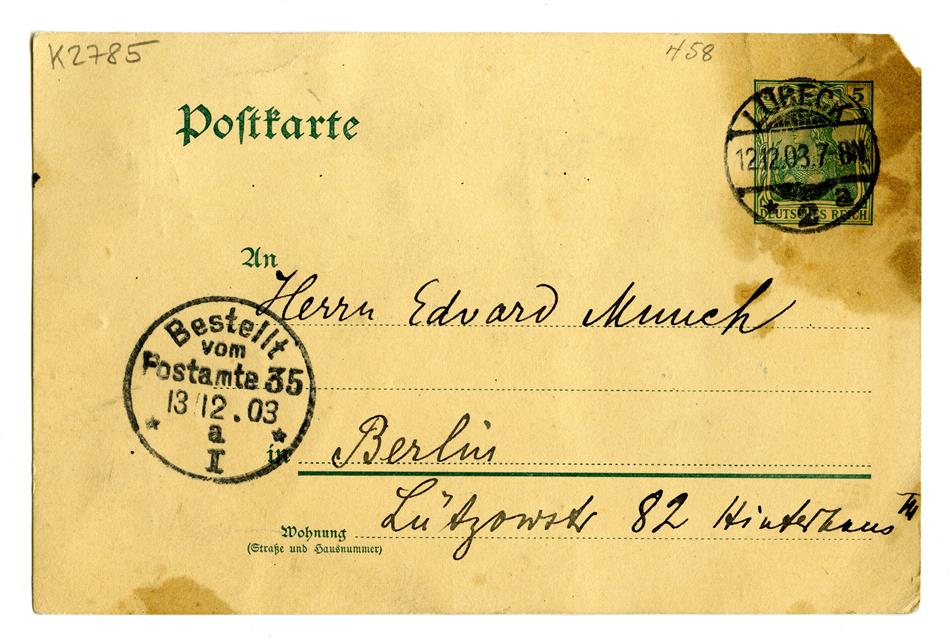 K2785
458
Postkarte
5
LÜBECK
12.12.03.7-8N.
* 2 a
DEUTSCHES REICH
An
Herrn Edvard Munch
Bestellt
vom
Postamte 35
13/12.03
* a *
I
in Berlin
Lützowstr 82 Hinterhaus
Wohnung
(Straße und Hausnummer)